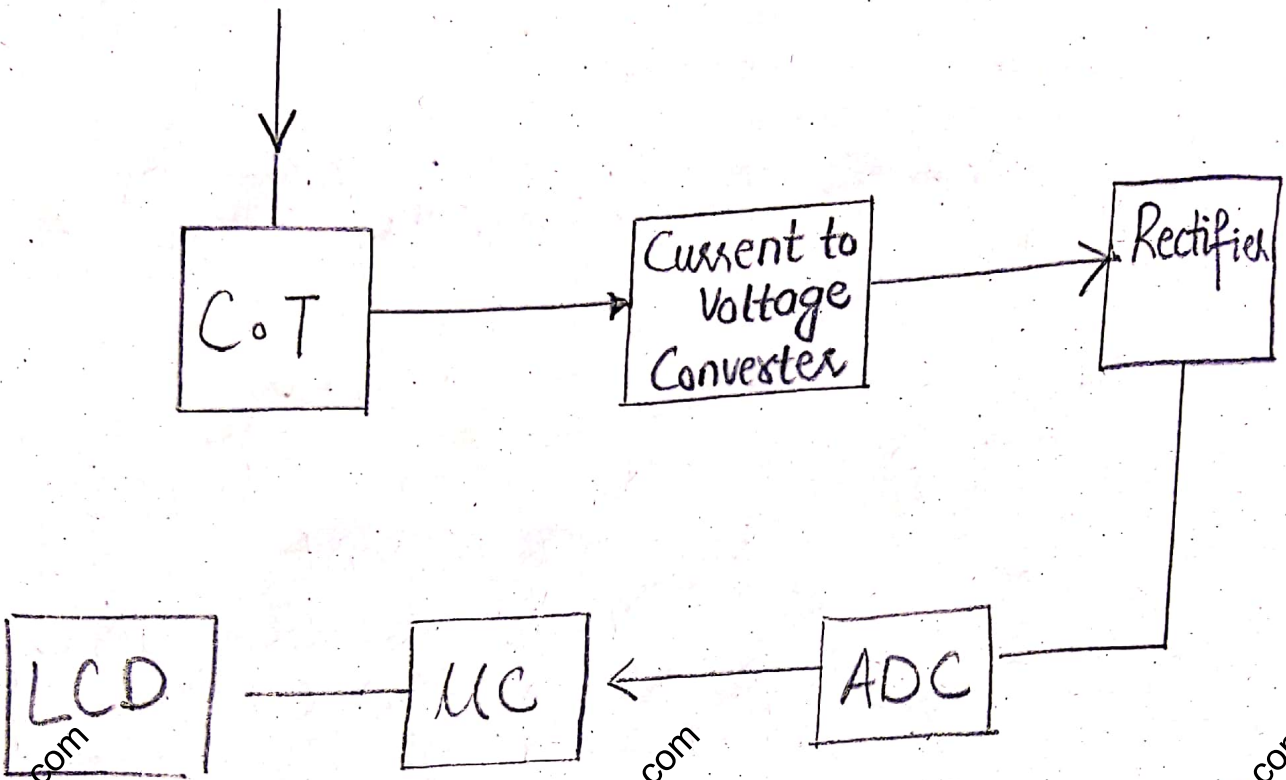 C.T
Current to
Voltage
Converter
Rectifier
ADC
µC
LCD
com
com
com